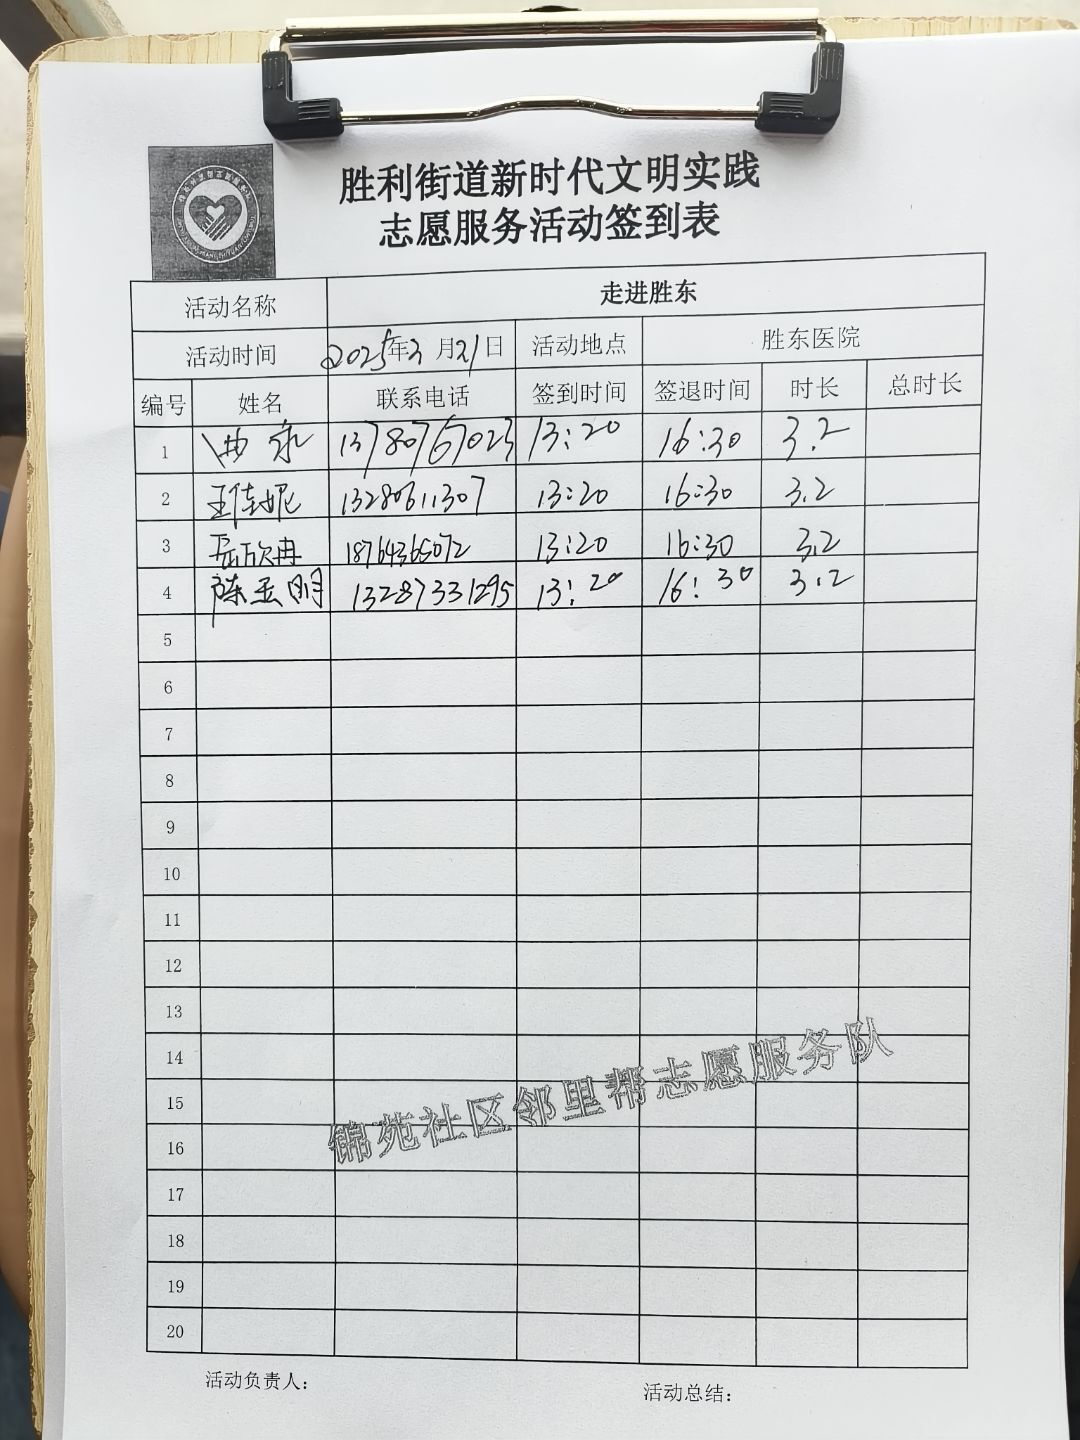 胜利街道新时代文明实践
志愿服务活动签到表
活动名称 走进胜东
活动时间 2025年2月21日 活动地点 胜东医院
编号 姓名 联系电话 签到时间 签退时间 时长 总时长
1 曲永 13780767023 13:20 16:30 3.2
2 王佳妮 13280611307 13:20 16:30 3.2
3 岳欣冉 18764365072 13:20 16:30 3.2
4 陈孟明 13287331295 13:20 16:30 3.2
5
6
7
8
9
10
11
12
13
14
15
16
17
18
19
20
锦苑社区邻里帮志愿服务队
活动负责人： 活动总结：